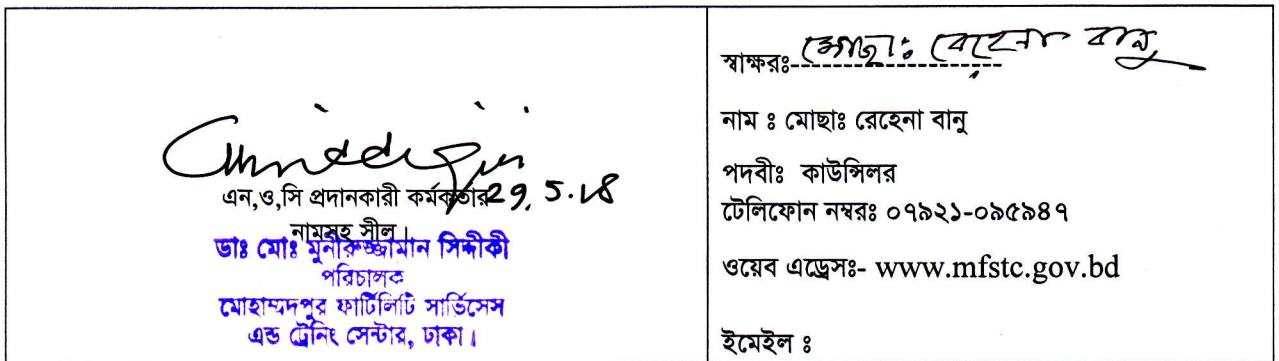 29.5.18
এন,ও,সি প্রদানকারী কর্মকর্তার
নামসহ সীল।
ডাঃ মোঃ মুনীরুজ্জামান সিদ্দীকী
পরিচালক
মোহাম্মদপুর ফার্টিলিটি সার্ভিসেস
এন্ড ট্রেনিং সেন্টার, ঢাকা।
স্বাক্ষরঃ মোছাঃ রেহেনা বানু
নাম ঃ মোছাঃ রেহেনা বানু
পদবীঃ কাউন্সিলর
টেলিফোন নম্বরঃ ০৭৯২১-০৯৫৯৪৭
ওয়েব এড্রেসঃ- www.mfstc.gov.bd
ইমেইল ঃ